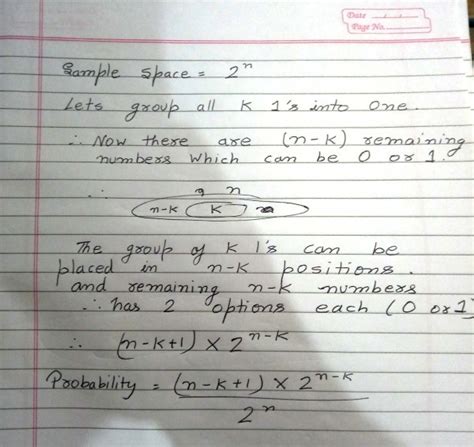 Date
Page No.
Sample space = 2^n
Lets group all K 1's into one.
∴ Now there are (n-K) remaining
numbers which can be 0 or 1.
∴ n
n-K K
The group of K 1's can be
placed in n-K positions.
and remaining n-K numbers
∴ has 2 options each (0 or 1
∴ (n-K+1) × 2^{n-K}
Probability = (n-K+1) × 2^{n-K}
2^n